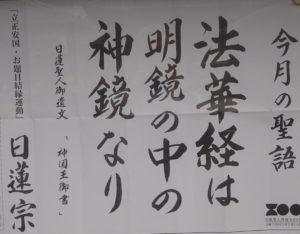 今月の聖語
法華経は
明鏡の中の
神鏡なり
日蓮聖人御遺文
「神国王御書」
「立正安国・お題目結縁運動」
日蓮宗